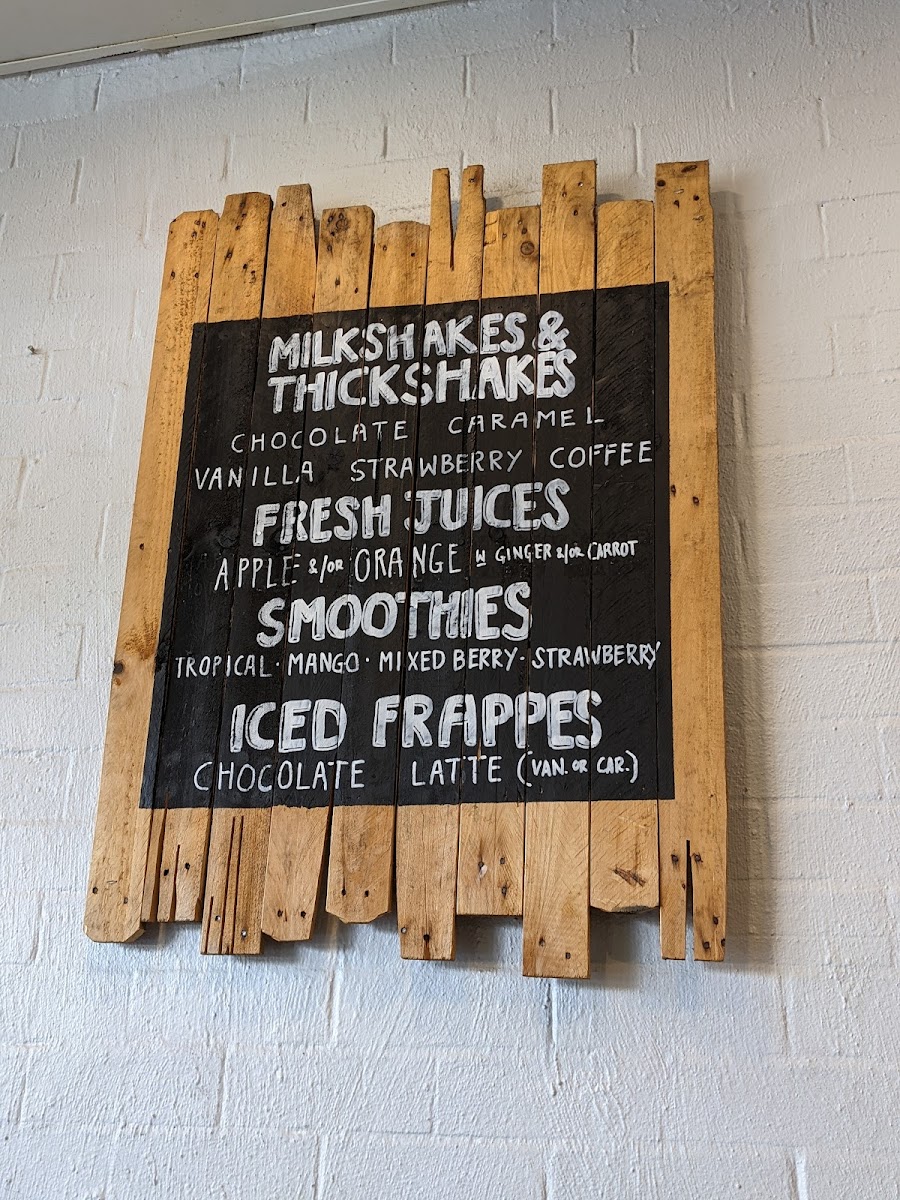 MILKSHAKES &
THICKSHAKES
CHOCOLATE CARAMEL
VANILLA STRAWBERRY COFFEE
FRESH JUICES
APPLE &/OR ORANGE W GINGER &/OR CARROT
SMOOTHIES
TROPICAL · MANGO · MIXED BERRY · STRAWBERRY
ICED FRAPPES
CHOCOLATE LATTE (VAN. OR CAR.)